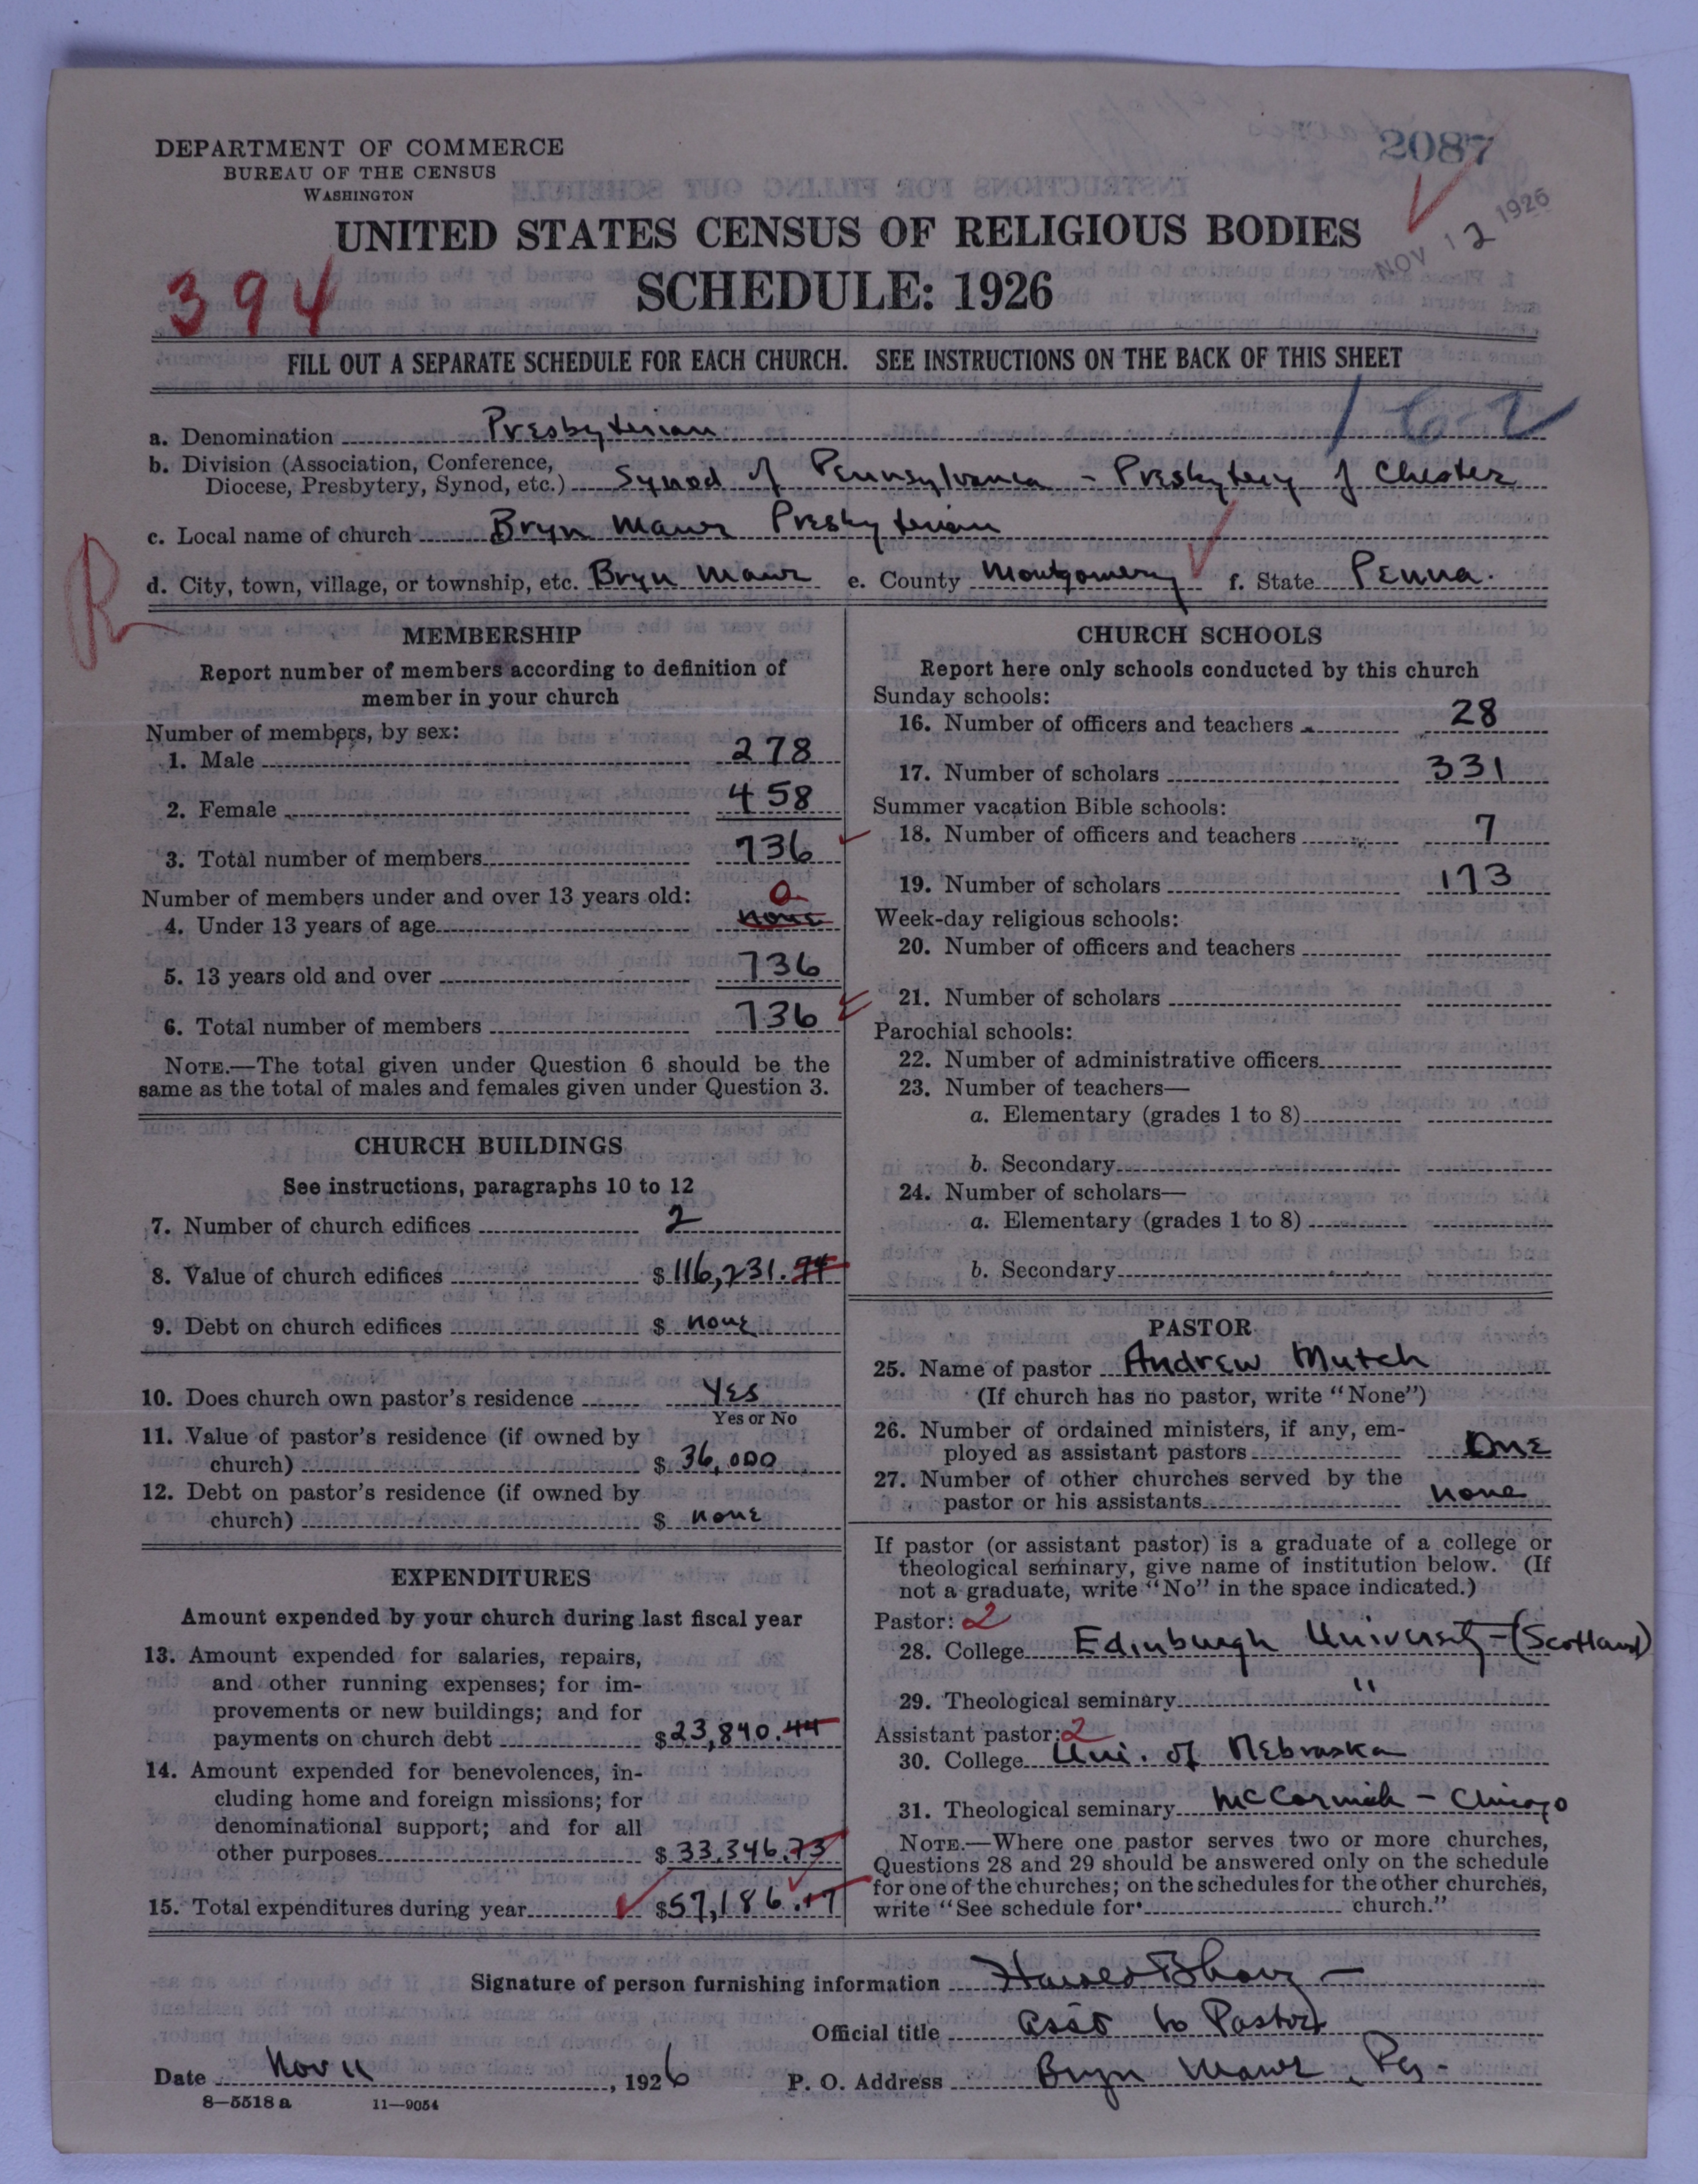 2087
NOV 12 1926
DEPARTMENT OF COMMERCE
BUREAU OF THE CENSUS
WASHINGTON
UNITED STATES CENSUS OF RELIGIOUS BODIES
SCHEDULE: 1926
394
FILL OUT A SEPARATE SCHEDULE FOR EACH CHURCH. SEE INSTRUCTIONS ON THE BACK OF THIS SHEET
a. Denomination Presbyterian
b. Division (Association, Conference,
Diocese, Presbytery, Synod, etc.) Synod of Pennsylvania - Presbytery of Chester
c. Local name of church Bryn Mawr Presbyterian
d. City, town, village, or township, etc. Bryn Mawr e. County Montgomery f. State Penna.
R
MEMBERSHIP
Report number of members according to definition of
member in your church
Number of members, by sex:
1. Male 278
2. Female 458
3. Total number of members 736
Number of members under and over 13 years old: 0
4. Under 13 years of age none
5. 13 years old and over 736
6. Total number of members 736
NOTE.—The total given under Question 6 should be the
same as the total of males and females given under Question 3.
CHURCH BUILDINGS
See instructions, paragraphs 10 to 12
7. Number of church edifices 2
8. Value of church edifices $ 116,231.94
9. Debt on church edifices $ none
10. Does church own pastor's residence Yes
Yes or No
11. Value of pastor's residence (if owned by
church) $ 36,000
12. Debt on pastor's residence (if owned by
church) $ none
EXPENDITURES
Amount expended by your church during last fiscal year
13. Amount expended for salaries, repairs,
and other running expenses; for im-
provements or new buildings; and for
payments on church debt $ 23,840.44
14. Amount expended for benevolences, in-
cluding home and foreign missions; for
denominational support; and for all
other purposes $ 33,346.73
15. Total expenditures during year $ 57,186.17
CHURCH SCHOOLS
Report here only schools conducted by this church
Sunday schools:
16. Number of officers and teachers 28
17. Number of scholars 331
Summer vacation Bible schools:
18. Number of officers and teachers 7
19. Number of scholars 173
Week-day religious schools:
20. Number of officers and teachers
21. Number of scholars
Parochial schools:
22. Number of administrative officers
23. Number of teachers—
a. Elementary (grades 1 to 8)
b. Secondary
24. Number of scholars—
a. Elementary (grades 1 to 8)
b. Secondary
PASTOR
25. Name of pastor Andrew Mutch
(If church has no pastor, write "None")
26. Number of ordained ministers, if any, em-
ployed as assistant pastors One
27. Number of other churches served by the
pastor or his assistants none
If pastor (or assistant pastor) is a graduate of a college or
theological seminary, give name of institution below. (If
not a graduate, write "No" in the space indicated.)
Pastor: 2
28. College Edinburgh University - (Scotland)
29. Theological seminary "
Assistant pastor: 2
30. College Uni. of Nebraska
31. Theological seminary McCormick - Chicago
NOTE.—Where one pastor serves two or more churches,
Questions 28 and 29 should be answered only on the schedule
for one of the churches; on the schedules for the other churches,
write "See schedule for church."
Signature of person furnishing information
Official title Asst to Pastor
Date Nov 11, 1926 P. O. Address Bryn Mawr, Pa.
8—5518 a 11—9054